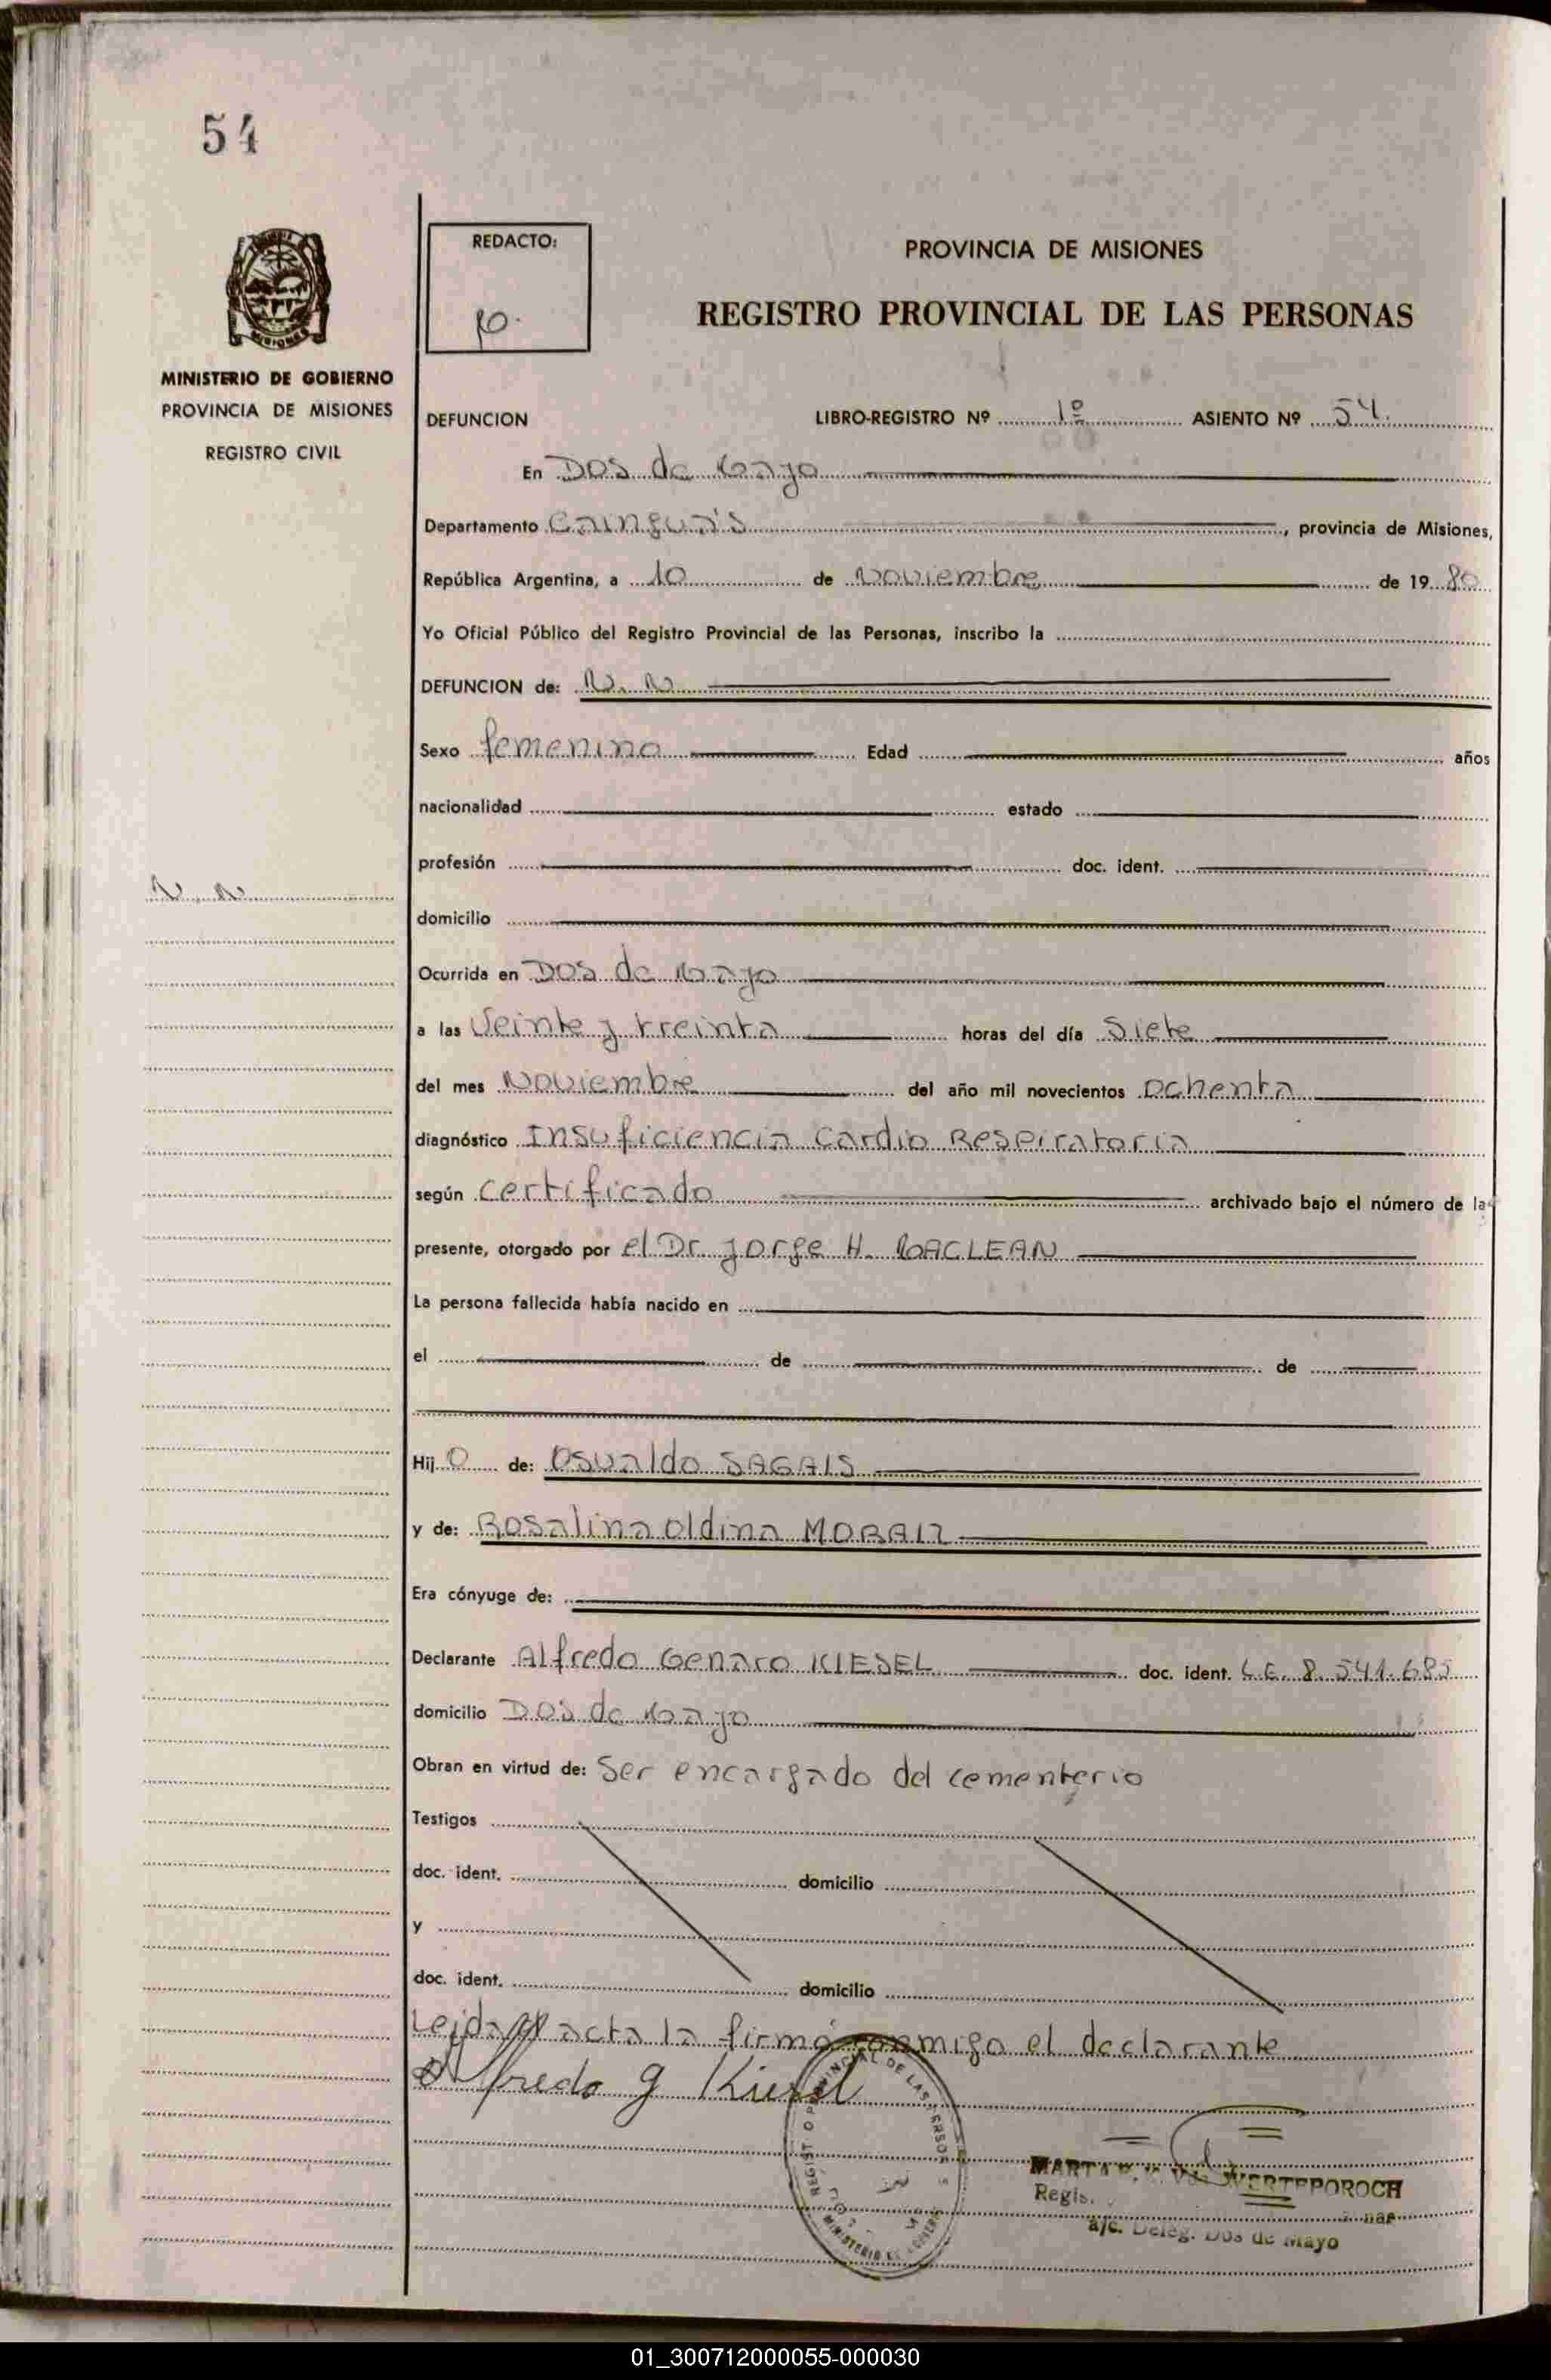 54
REDACTO:
PROVINCIA DE MISIONES
REGISTRO PROVINCIAL DE LAS PERSONAS
MINISTERIO DE GOBIERNO
PROVINCIA DE MISIONES
REGISTRO CIVIL
DEFUNCION LIBRO-REGISTRO Nº 1º ASIENTO Nº 54.
En Dos de Mayo
Departamento Cainguás, provincia de Misiones,
República Argentina, a 10 de Noviembre de 1980
Yo Oficial Público del Registro Provincial de las Personas, inscribo la
DEFUNCION de: N. N
Sexo femenino Edad años
nacionalidad estado
profesión doc. ident.
N. N
domicilio
Ocurrida en Dos de Mayo
a las Veinte y treinta horas del día Siete
del mes Noviembre del año mil novecientos ochenta
diagnóstico Insuficiencia Cardio Respiratoria
según certificado archivado bajo el número de la
presente, otorgado por el Dr. Jorge H. MACLEAN
La persona fallecida había nacido en
el de de
Hij O de: Osvaldo SAGAIS
y de: Rosalina Oldina MORAIZ
Era cónyuge de:
Declarante Alfredo Genaro KIESEL doc. ident. L.E. 8.541.685
domicilio Dos de Mayo
Obran en virtud de: Ser encargado del cementerio
Testigos
doc. ident. domicilio
y
doc. ident. domicilio
Leída el acta la firmó conmigo el declarante
Alfredo g Kiesel
MARTA WERTEPOROCH
Regis.
a/c. Deleg. Dos de Mayo
01_300712000055-000030